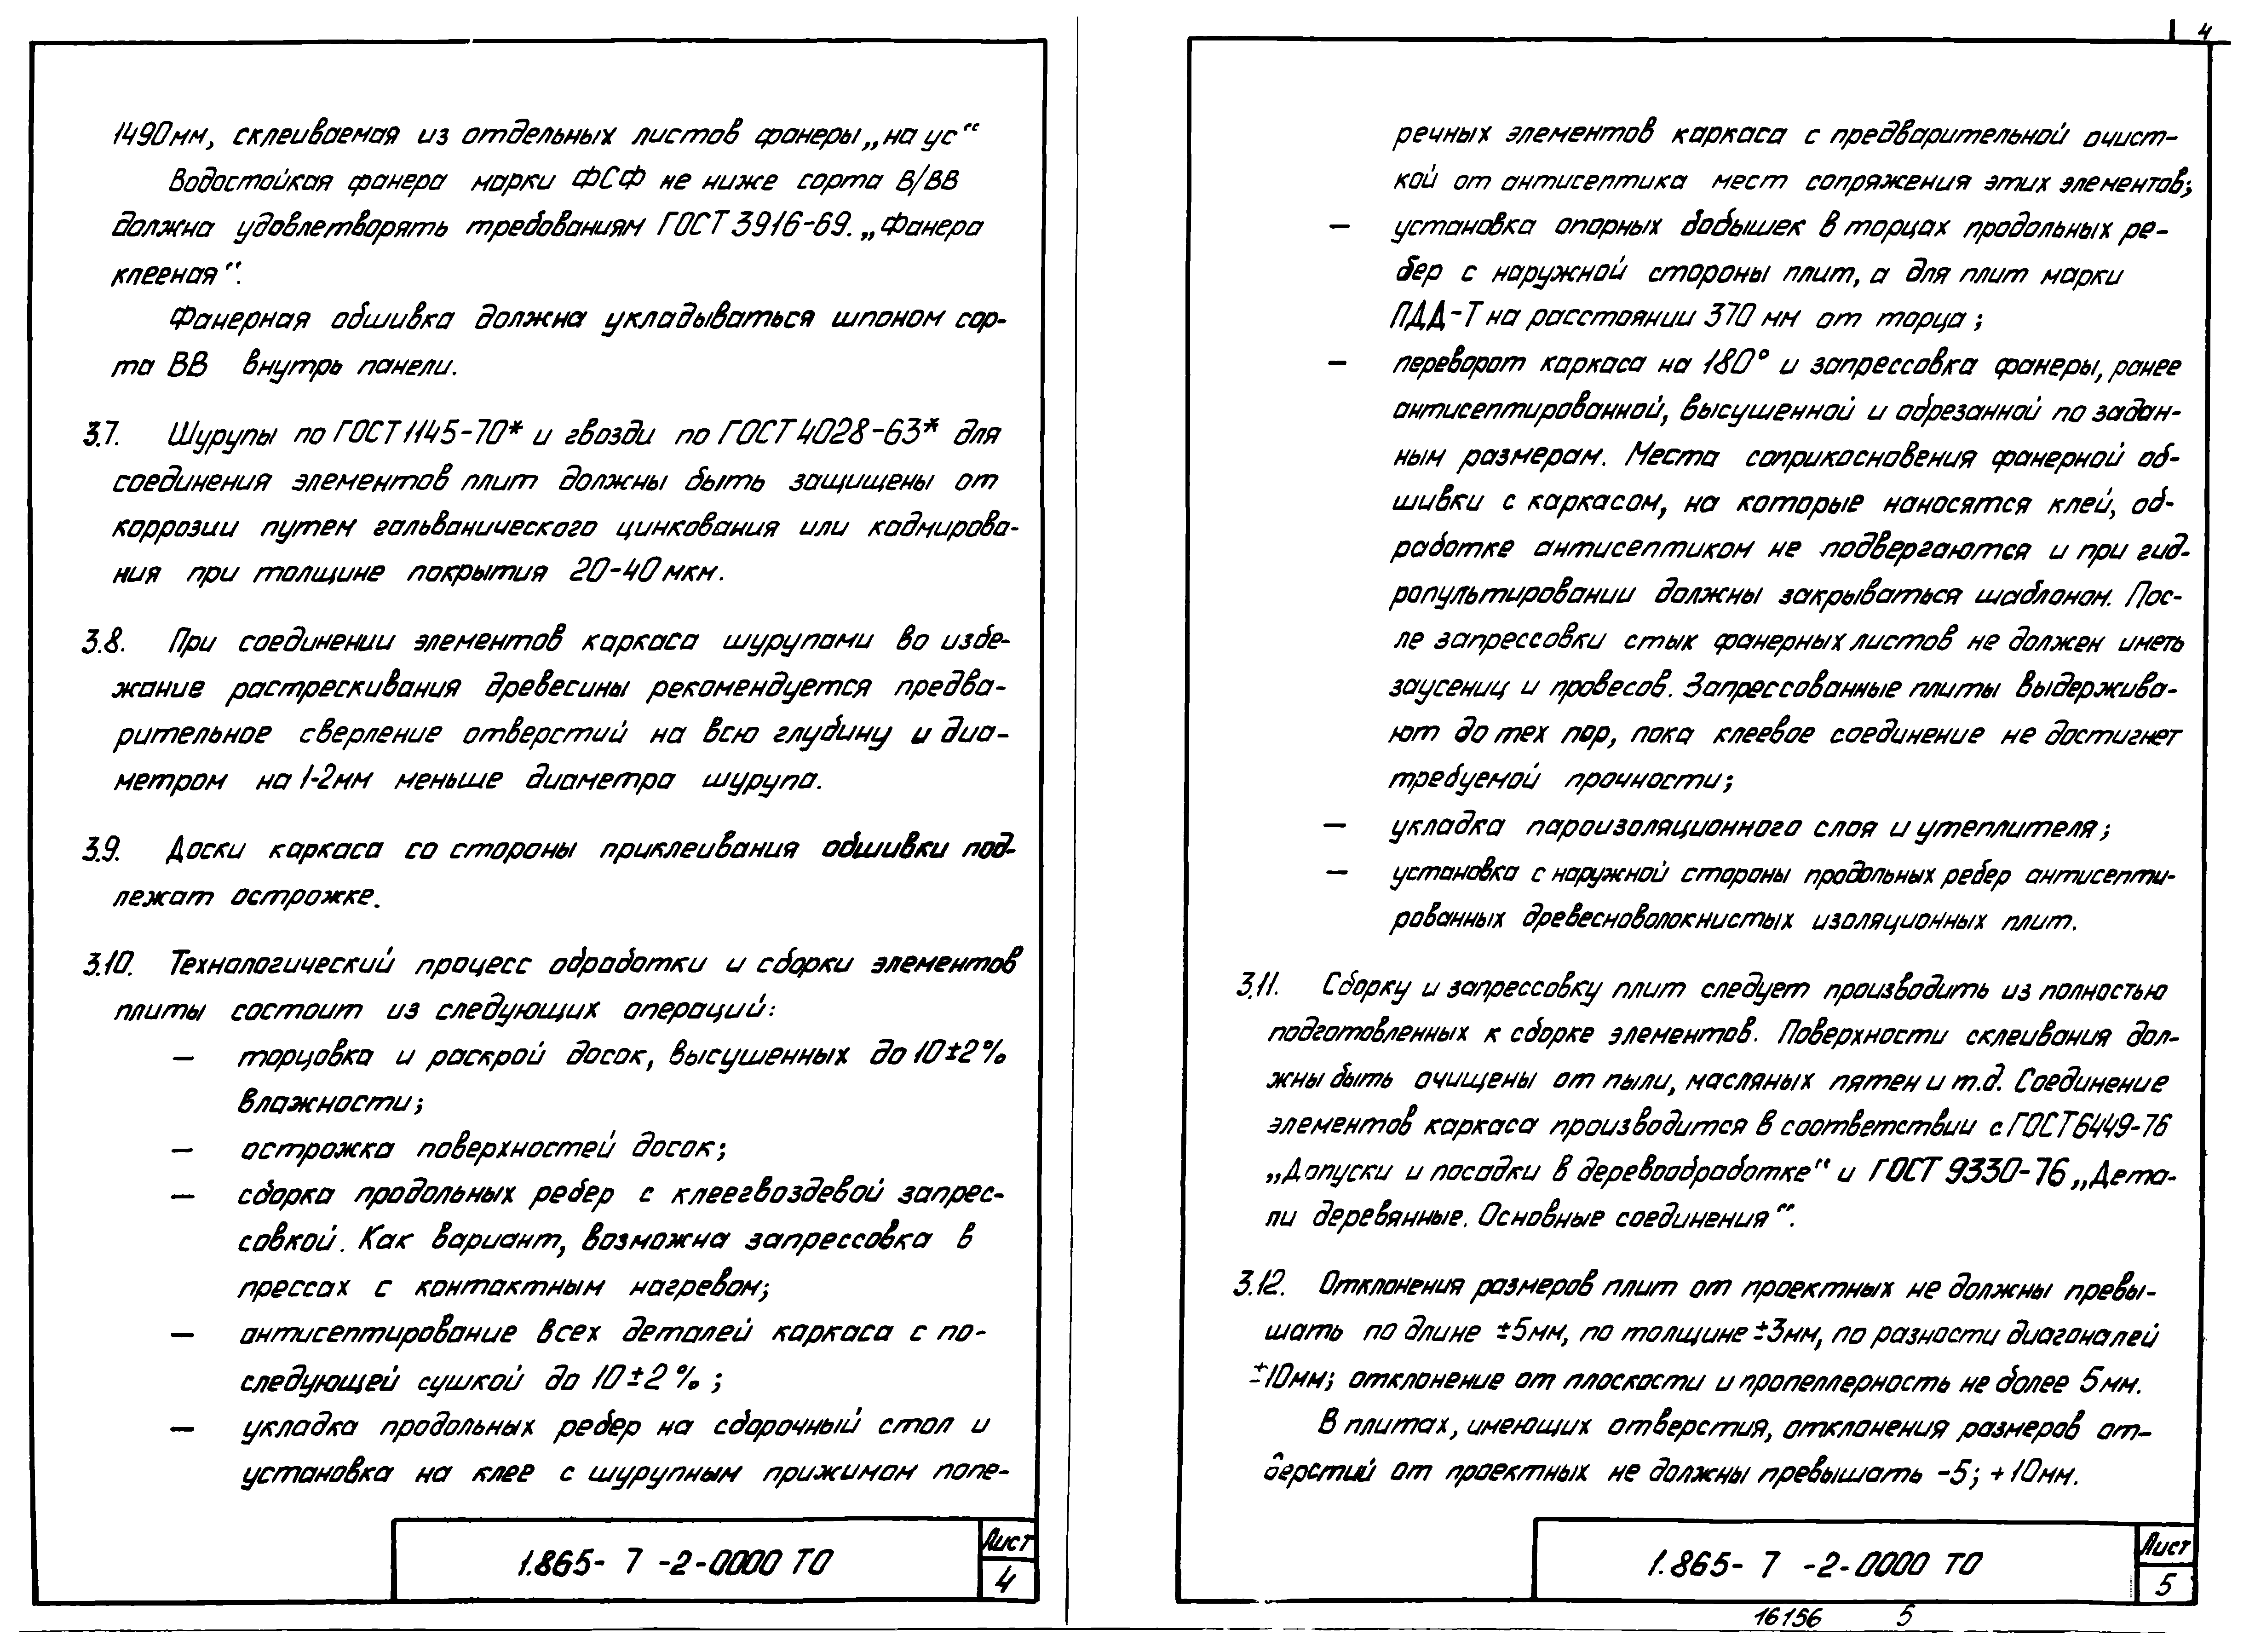 1490мм, склеиваемая из отдельных листов фанеры „на ус“
Водостойкая фанера марки ФСФ не ниже сорта В/ВВ
должна удовлетворять требованиям ГОСТ 3916-69. „Фанера
клееная“.
Фанерная обшивка должна укладываться шпоном сор-
та ВВ внутрь панели.
3.7. Шурупы по ГОСТ 1145-70* и гвозди по ГОСТ 4028-63* для
соединения элементов плит должны быть защищены от
коррозии путем гальванического цинкования или кадмирова-
ния при толщине покрытия 20-40мкм.
3.8. При соединении элементов каркаса шурупами во избе-
жание растрескивания древесины рекомендуется предва-
рительное сверление отверстий на всю глубину и диа-
метром на 1-2мм меньше диаметра шурупа.
3.9. Доски каркаса со стороны приклеивания обшивки под-
лежат острожке.
3.10. Технологический процесс обработки и сборки элементов
плиты состоит из следующих операций:
— торцовка и раскрой досок, высушенных до 10±2%
влажности;
— острожка поверхностей досок;
— сборка продольных ребер с клеегвоздевой запрес-
совкой. Как вариант, возможна запрессовка в
прессах с контактным нагревом;
— антисептирование всех деталей каркаса с по-
следующей сушкой до 10±2%;
— укладка продольных ребер на сборочный стол и
установка на клее с шурупным прижимом попе-
1.865- 7 -2-0000 ТО
Лист
4
4
речных элементов каркаса с предварительной очист-
кой от антисептика мест сопряжения этих элементов;
— установка опорных бобышек в торцах продольных ре-
бер с наружной стороны плит, а для плит марки
ПДД-Т на расстоянии 370 мм от торца;
— переворот каркаса на 180° и запрессовка фанеры, ранее
антисептированной, высушенной и обрезанной по задан-
ным размерам. Места соприкосновения фанерной об-
шивки с каркасом, на которые наносятся клей, об-
работке антисептиком не подвергаются и при гид-
ропультировании должны закрываться шаблоном. Пос-
ле запрессовки стык фанерных листов не должен иметь
заусениц и провесов. Запрессованные плиты выдержива-
ют до тех пор, пока клеевое соединение не достигнет
требуемой прочности;
— укладка пароизоляционного слоя и утеплителя;
— установка с наружной стороны продольных ребер антисепти-
рованных древесноволокнистых изоляционных плит.
3.11. Сборку и запрессовку плит следует производить из полностью
подготовленных к сборке элементов. Поверхности склеивания дол-
жны быть очищены от пыли, масляных пятен и т.д. Соединение
элементов каркаса производится в соответствии с ГОСТ 6449-76
„Допуски и посадки в деревообработке“ и ГОСТ 9330-76 „Дета-
ли деревянные. Основные соединения“.
3.12. Отклонения размеров плит от проектных не должны превы-
шать по длине ±5мм, по толщине ±3мм, по разности диагоналей
±10мм; отклонение от плоскости и пропеллерность не более 5мм.
В плитах, имеющих отверстия, отклонения размеров от-
верстий от проектных не должны превышать -5; +10мм.
1.865- 7 -2-0000 ТО
Лист
5
16156 5